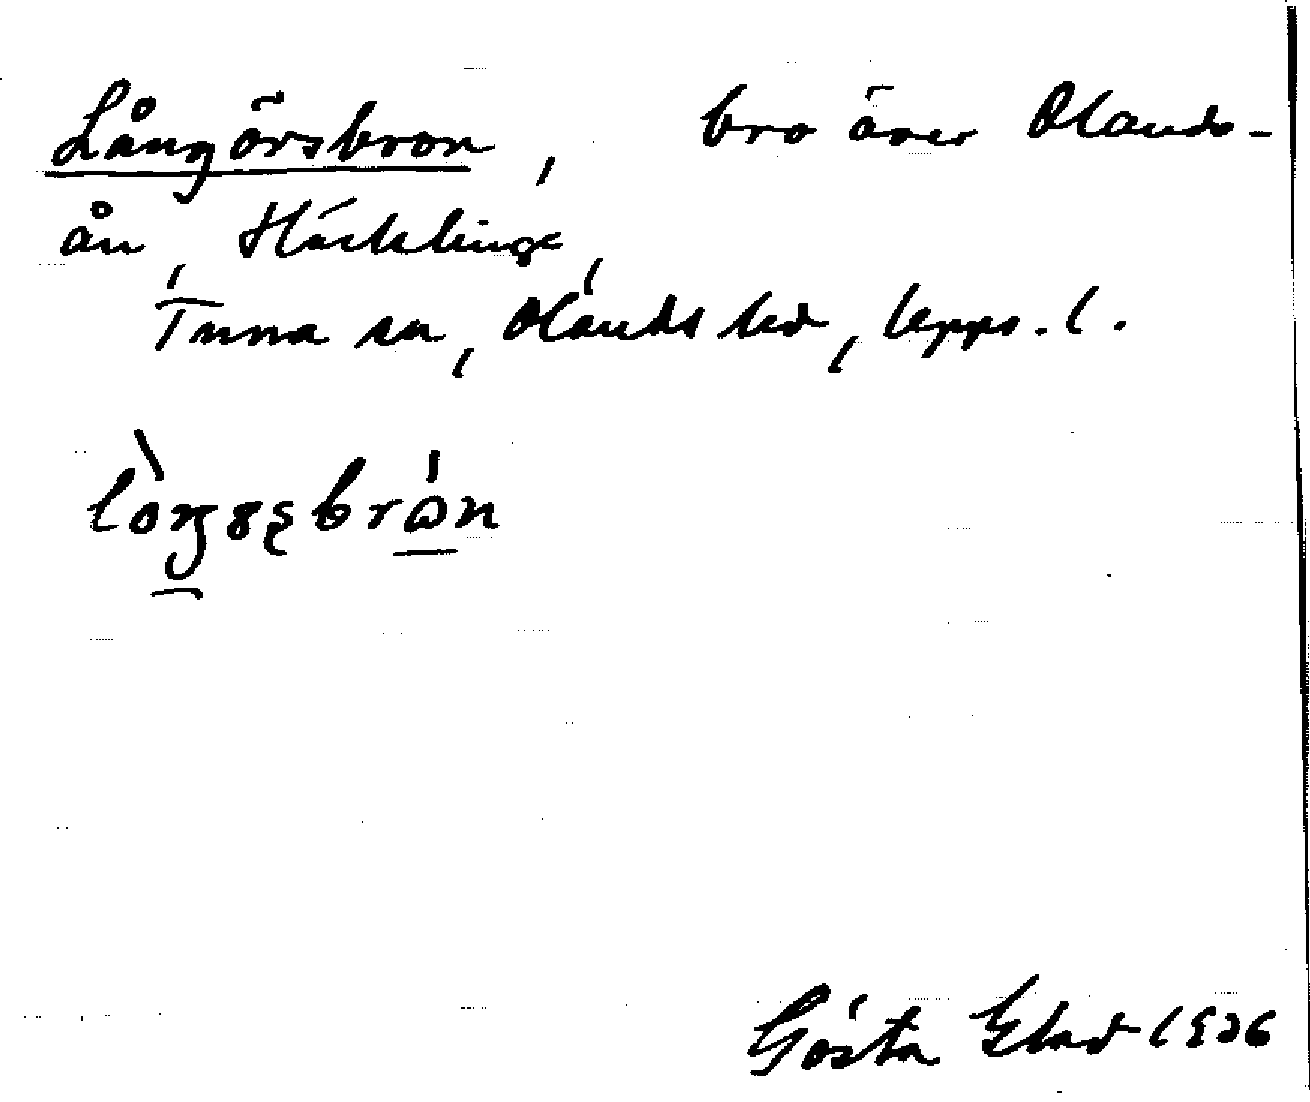 Långörsbron, bro över Olands-
ån, Häcklinge,
Tuna sn, Olands hd, Upps. l.
Gösta Elad 1926